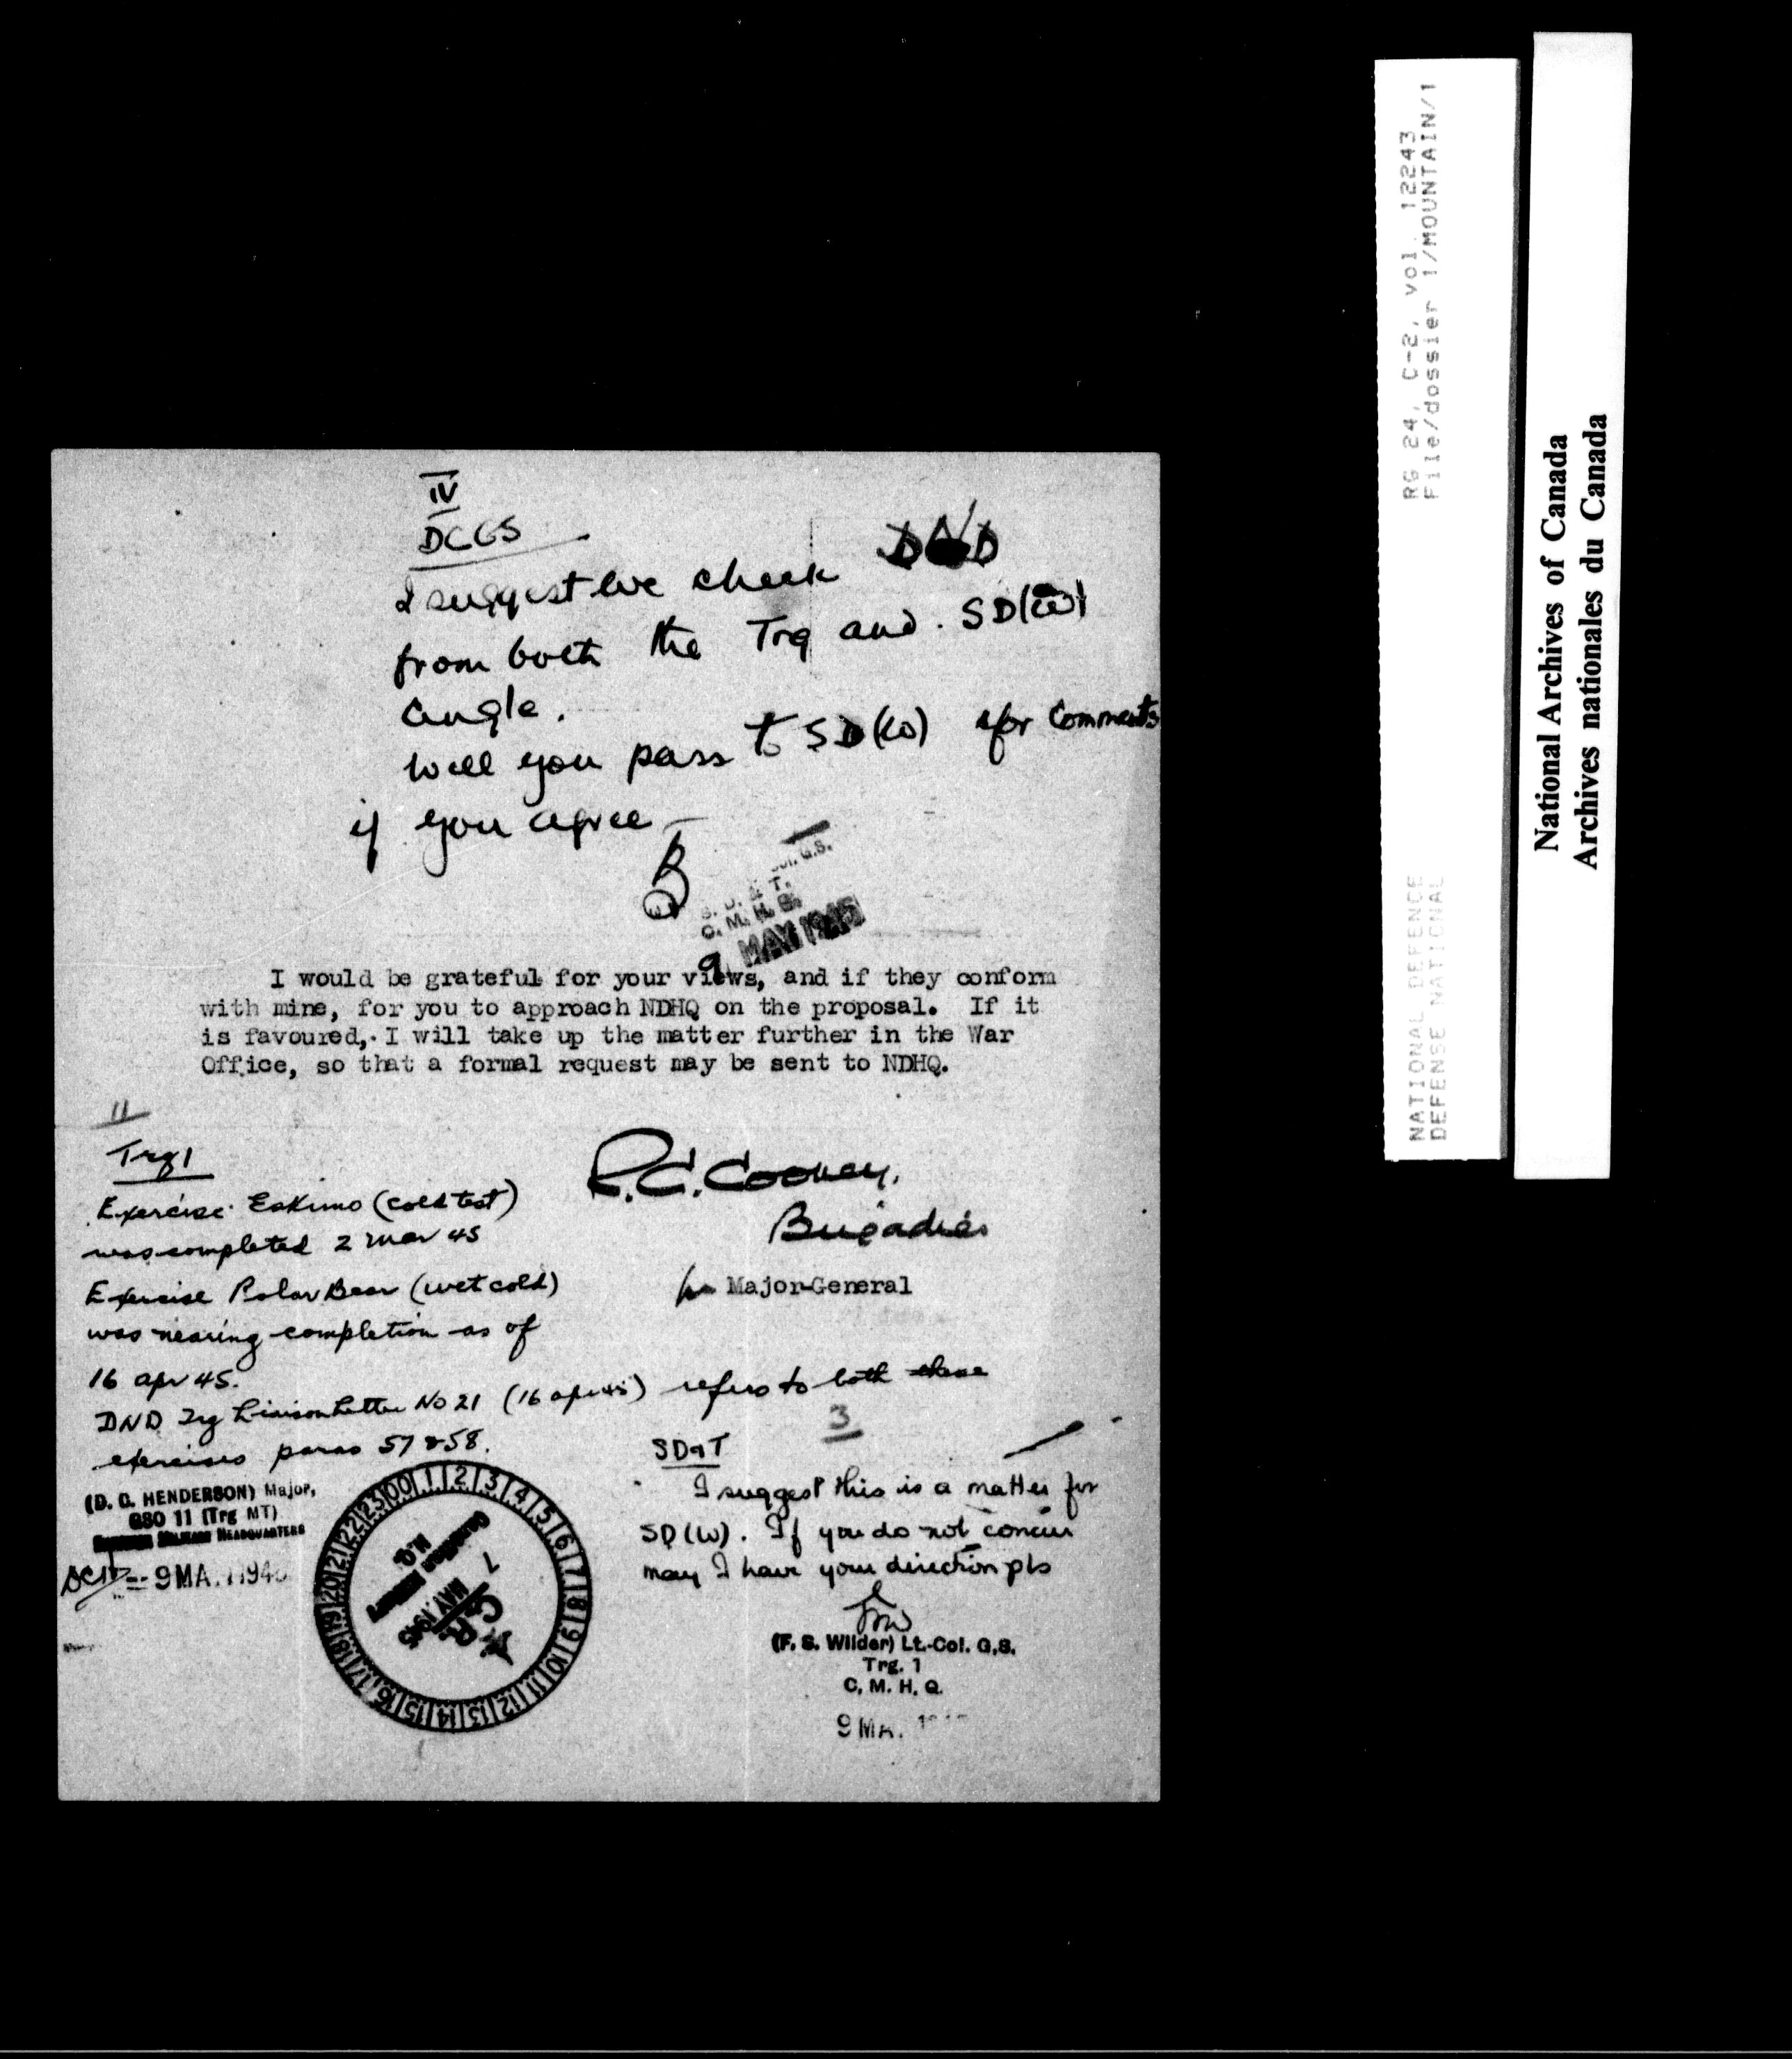 IV
DCGS
I suggest we check DND
from both the Trg and SD(W)
angle.
Will you pass to SD(W) for comments
if you agree
Col. G.S.
S. D. & T.
C. M. H. Q.
9 MAY 1945
I would be grateful for your views, and if they conform
with mine, for you to approach NDHQ on the proposal. If it
is favoured, I will take up the matter further in the War
Office, so that a formal request may be sent to NDHQ.
II
Trg 1
Exercise Eskimo (cold test)
was completed 2 Mar 45
Exercise Polar Bear (wet cold)
was nearing completion as of
16 apr 45.
DND Trg Liaison Letter No 21 (16 apr 45) refers to both these
exercises paras 57 & 58.
(D. G. HENDERSON) Major,
GSO 11 (Trg MT)
CANADIAN MILITARY HEADQUARTERS
9 MA. 194
R.C. Cooney,
Brigadier
for Major-General
00 1 2 3 4 5 6 7 8 9 10 11 12 13 14 15 16 17 18 19 20 21 22 23
Canadian Military
H.Q.
7
MAY 1945
C.R.
3
SD&T
I suggest this is a matter for
SD(W). If you do not concur
may I have your direction pls
(F. S. Wilder) Lt.-Col. G.S.
Trg. 1
C. M. H. Q.
9 MA.
RG 24, C-2, vol. 12243
File/dossier 1/MOUNTAIN/1
NATIONAL DEFENCE
DEFENSE NATIONAL
National Archives of Canada
Archives nationales du Canada